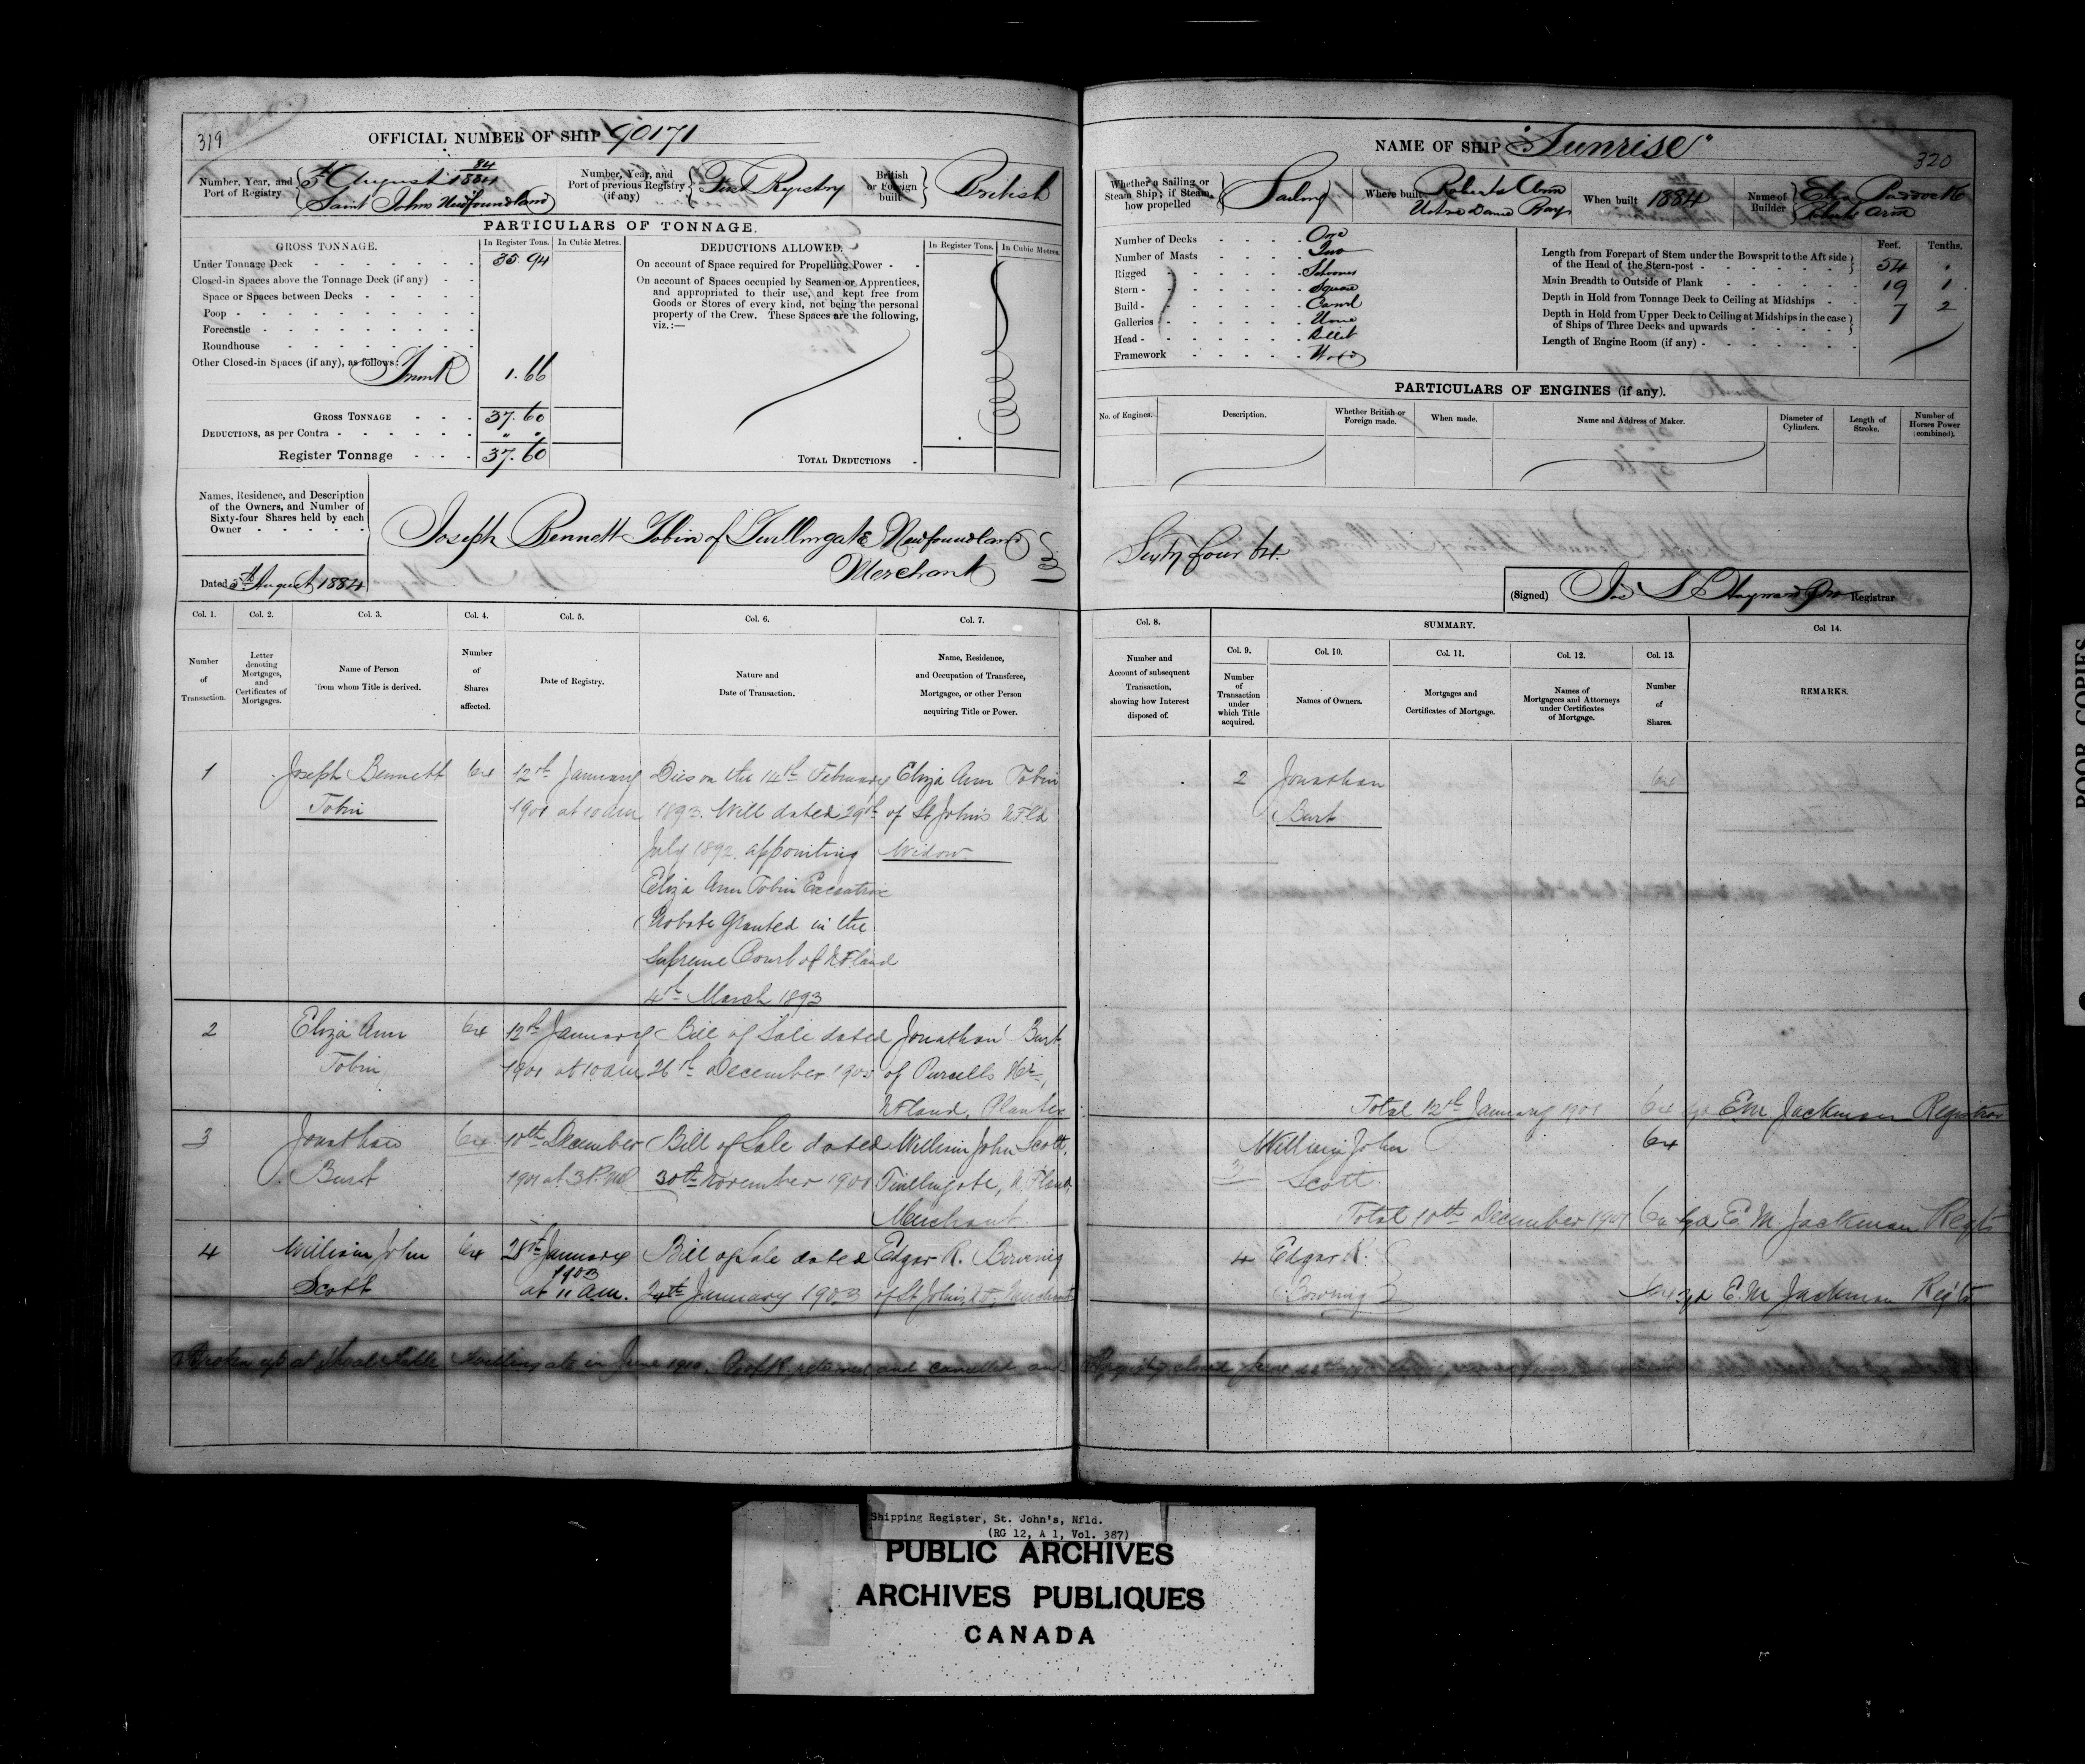 319
OFFICIAL NUMBER OF SHIP 90171
Number, Year, and Port of Registry
84
5th August 1884
Saint Johns Newfoundland
Number, Year, and Port of previous Registry (if any)
First Registry
British or Foreign built
British
PARTICULARS OF TONNAGE.
GROSS TONNAGE.
In Register Tons. In Cubic Metres.
Under Tonnage Deck 35.94
Closed-in Spaces above the Tonnage Deck (if any)
Space or Spaces between Decks
Poop
Forecastle
Roundhouse
Other Closed-in Spaces (if any), as follows:
Trunk 1.66
GROSS TONNAGE 37.60
DEDUCTIONS, as per Contra " "
Register Tonnage 37.60
DEDUCTIONS ALLOWED.
In Register Tons. In Cubic Metres.
On account of Space required for Propelling Power
On account of Spaces occupied by Seamen or Apprentices,
and appropriated to their use, and kept free from
Goods or Stores of every kind, not being the personal
property of the Crew. These Spaces are the following,
viz.:—
TOTAL DEDUCTIONS
Names, Residence, and Description
of the Owners, and Number of
Sixty-four Shares held by each
Owner
Dated 5th August 1884
Joseph Bennett Tobin of Twillingate Newfoundland
Merchant
Col. 1. Col. 2. Col. 3. Col. 4. Col. 5. Col. 6. Col. 7.
Number of Transaction.
Letter denoting Mortgages, and Certificates of Mortgages.
Name of Person from whom Title is derived.
Number of Shares affected.
Date of Registry.
Nature and Date of Transaction.
Name, Residence, and Occupation of Transferee, Mortgagee, or other Person acquiring Title or Power.
1 Joseph Bennett 64 12th January Dies on the 14th February Eliza Ann Tobin
Tobin 1901 at 10 am 1893. Will dated 29th of St John's NFld
July 1892. appointing Widow
Eliza Ann Tobin Executrix
Probate Granted in the
Supreme Court of NFland
4th March 1893
2 Eliza Ann 64 12th January Bill of Sale dated Jonathan Burt
Tobin 1901 at 10 am 26th December 1900 of Purcells Hr,
NFland, Planter
3 Jonathan 64 10th December Bill of Sale dated William John Scott,
Burt 1901 at 3 P.M. 30th November 1901 Twillingate, NFland
Merchant
4 William John 64 28th January Bill of Sale dated Edgar R. Bowring
1903
Scott at 11 am. 24th January 1903 of St John's, NF, Merchant
Broken up at Shoal Tickle Twillingate in June 1910. Cert R. returned and cancelled and
NAME OF SHIP "Sunrise"
320
Whether a Sailing or Steam Ship; if Steam, how propelled
Sailing
Where built
Roberts Arm
Notre Dame Bay
When built 1884
Name of Builder
Paddock
Roberts Arm
Number of Decks One
Number of Masts Two
Rigged Schooner
Stern Square
Build Carvel
Galleries None
Head Billet
Framework Wood
Feet. Tenths.
Length from Forepart of Stem under the Bowsprit to the Aft side
of the Head of the Stern-post 54 .
Main Breadth to Outside of Plank 19 1
Depth in Hold from Tonnage Deck to Ceiling at Midships 7 2
Depth in Hold from Upper Deck to Ceiling at Midships in the case
of Ships of Three Decks and upwards
Length of Engine Room (if any)
PARTICULARS OF ENGINES (if any).
No. of Engines. Description. Whether British or Foreign made. When made. Name and Address of Maker. Diameter of Cylinders. Length of Stroke. Number of Horses Power (combined).
Sixty four 64.
(Signed) Registrar
Col. 8. SUMMARY. Col 14.
Col. 9. Col. 10. Col. 11. Col. 12. Col. 13.
Number and Account of subsequent Transaction, showing how Interest disposed of.
Number of Transaction under which Title acquired.
Names of Owners.
Mortgages and Certificates of Mortgage.
Names of Mortgagees and Attorneys under Certificates of Mortgage.
Number of Shares.
REMARKS.
2 Jonathan 64
Burt
Total 12th January 1901 64 sgd E.M. Jackman Registrar
William John 64
3 Scott
Total 10th December 1901 64 sgd E. M. Jackman Regtr
4 Edgar R.
Bowring 64 sgd E. M. Jackman Regtr
Registry closed June
POOR COPIES
Shipping Register, St. John's, Nfld.
(RG 12, A 1, Vol. 387)
PUBLIC ARCHIVES
ARCHIVES PUBLIQUES
CANADA